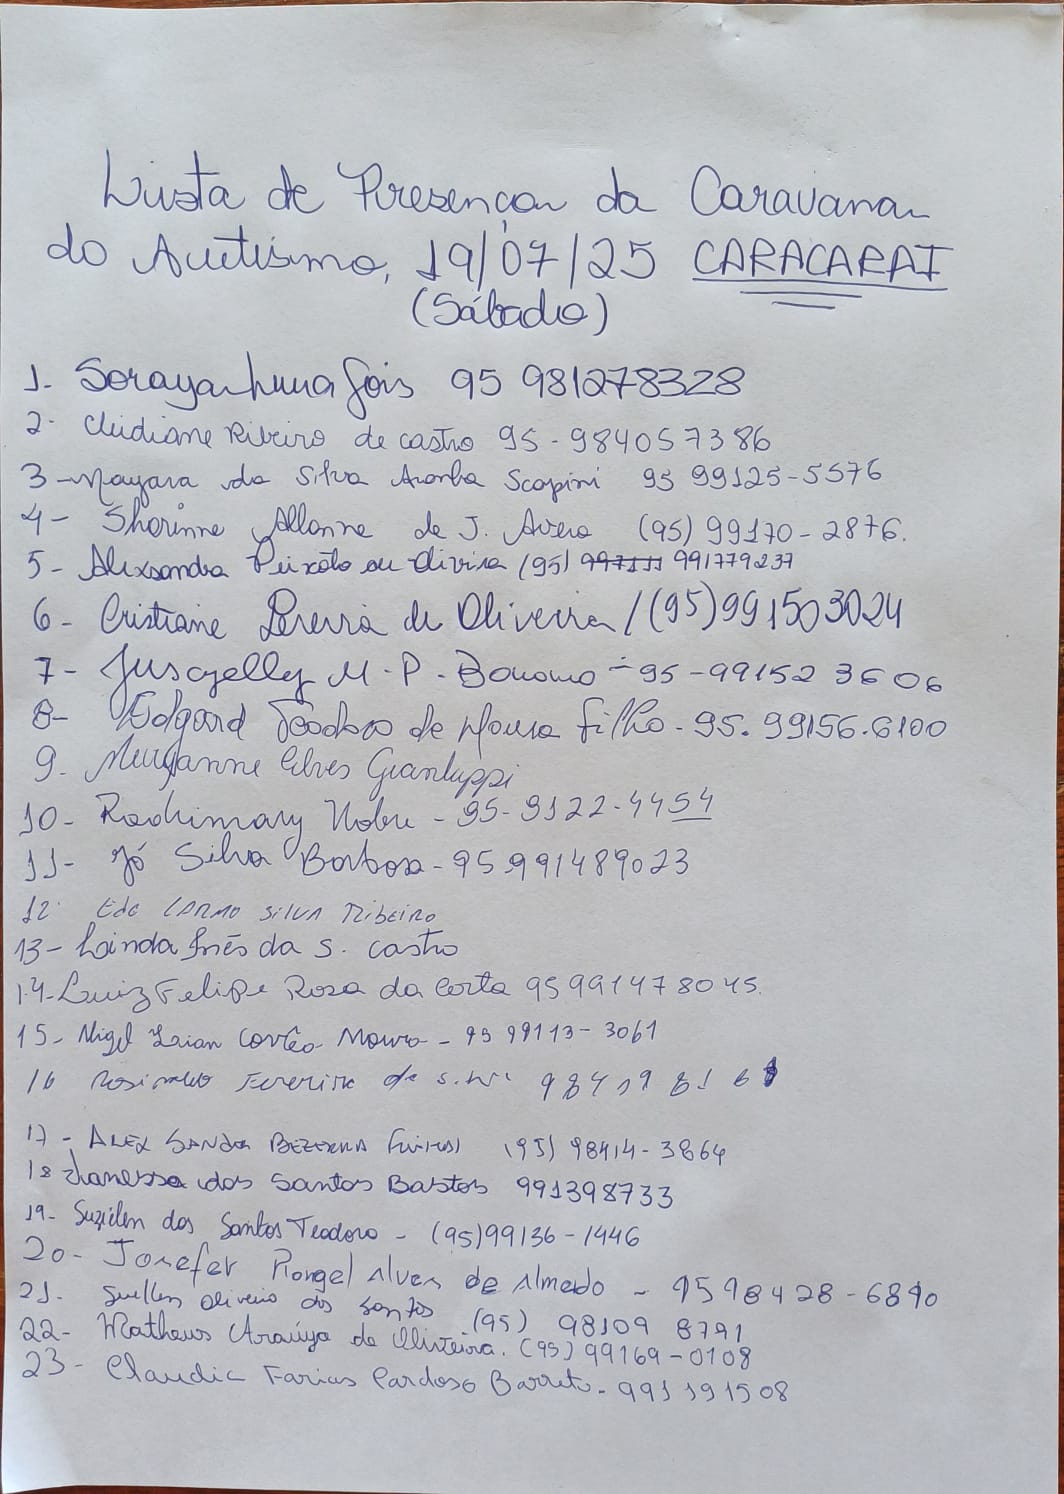 Lista de Presença da Caravana
do Autismo, 19/07/25 CARACARAI
(Sábado)
1- Soraya Luna Gois 95 981278328
2- Cleidiane Ribeiro de castro 95-984057386
3-Mayara da Silva Aranha Scapini 95 99125-5576
4- Sharinne Allanne de J. Avera (95) 99170-2876.
5- Alexsandra Peixôto de Olivira (95) 991779237
6- Cristiane Pereira de Oliveira /(95)991503024
7- Juscyelly M. P. Bonomo - 95-99152 3606
8- Edgard Teodoro de Moura filho - 95. 99156.6100
9. Murganne Alves Gianluppi
10- Rochimary Nobre - 95- 9122-4454
11- Jó Silva Barbosa - 95 991489023
12. Ede CARMO SILVA Ribeiro
13- Lainda Inês da S. castro
14-Luiz Felipe Rosa da Costa 95 991478045.
15- Nigel Laian Corrêa Moura - 95 99113-3061
16 Rosinaldo Ferreira da
17- ALEX SANDRO BEZERRA (95) 98414-3864
18 Vanessa dos Santos Bastos 991398733
19- Suzielen dos Santos Teodoro - (95)99136-1446
20- Josefer Rangel Alves de Almeida - 95 98428-6890
21- Suellen Oliveira dos Santos (95) 98109 8791
22- Matheus Araújo de Oliveira. (95) 99169-0108
23- Claudia Farias Cardoso Barreto - 991191508